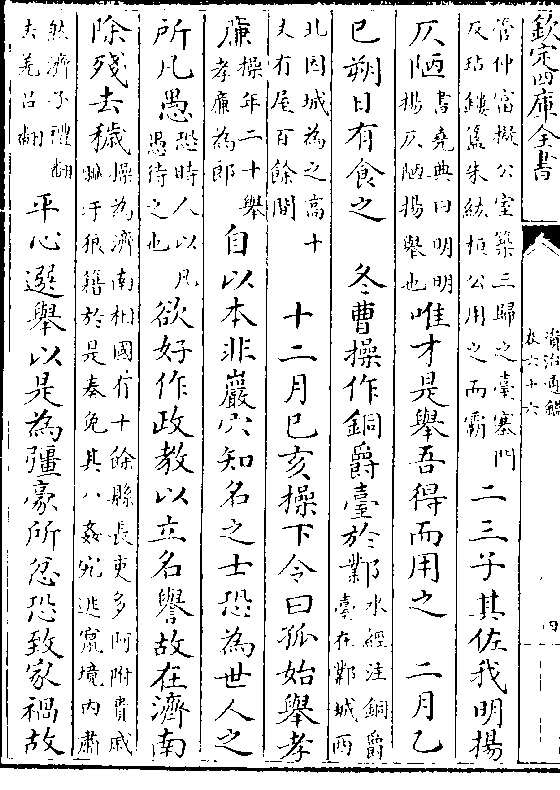 欽定四庫全書
資治通鑑
卷六十六
四
管仲富擬公室築三歸之臺塞門
反玷鏤簋朱紘桓公用之而霸
二三子其佐我明揚
仄陋
書堯典曰明明
揚仄陋揚舉也
唯才是舉吾得而用之　二月乙
巳朔日有食之　冬曹操作銅爵臺於鄴
水經注銅爵
臺在鄴城西
北因城為之高十
丈有屋百餘間
十二月己亥操下令曰孤始舉孝
廉
操年二十舉
孝廉為郎
自以本非巖穴知名之士恐為世人之
所凡愚
恐時人以凡
愚待之也
欲好作政教以立名譽故在濟南
除殘去穢
操為濟南相國有十餘縣長吏多阿附貴戚
贓汙狼籍於是奏免其八姦宄逃竄境內肅
然濟子禮翻
去羌呂翻
平心選舉以是為彊豪所忿恐致家禍故